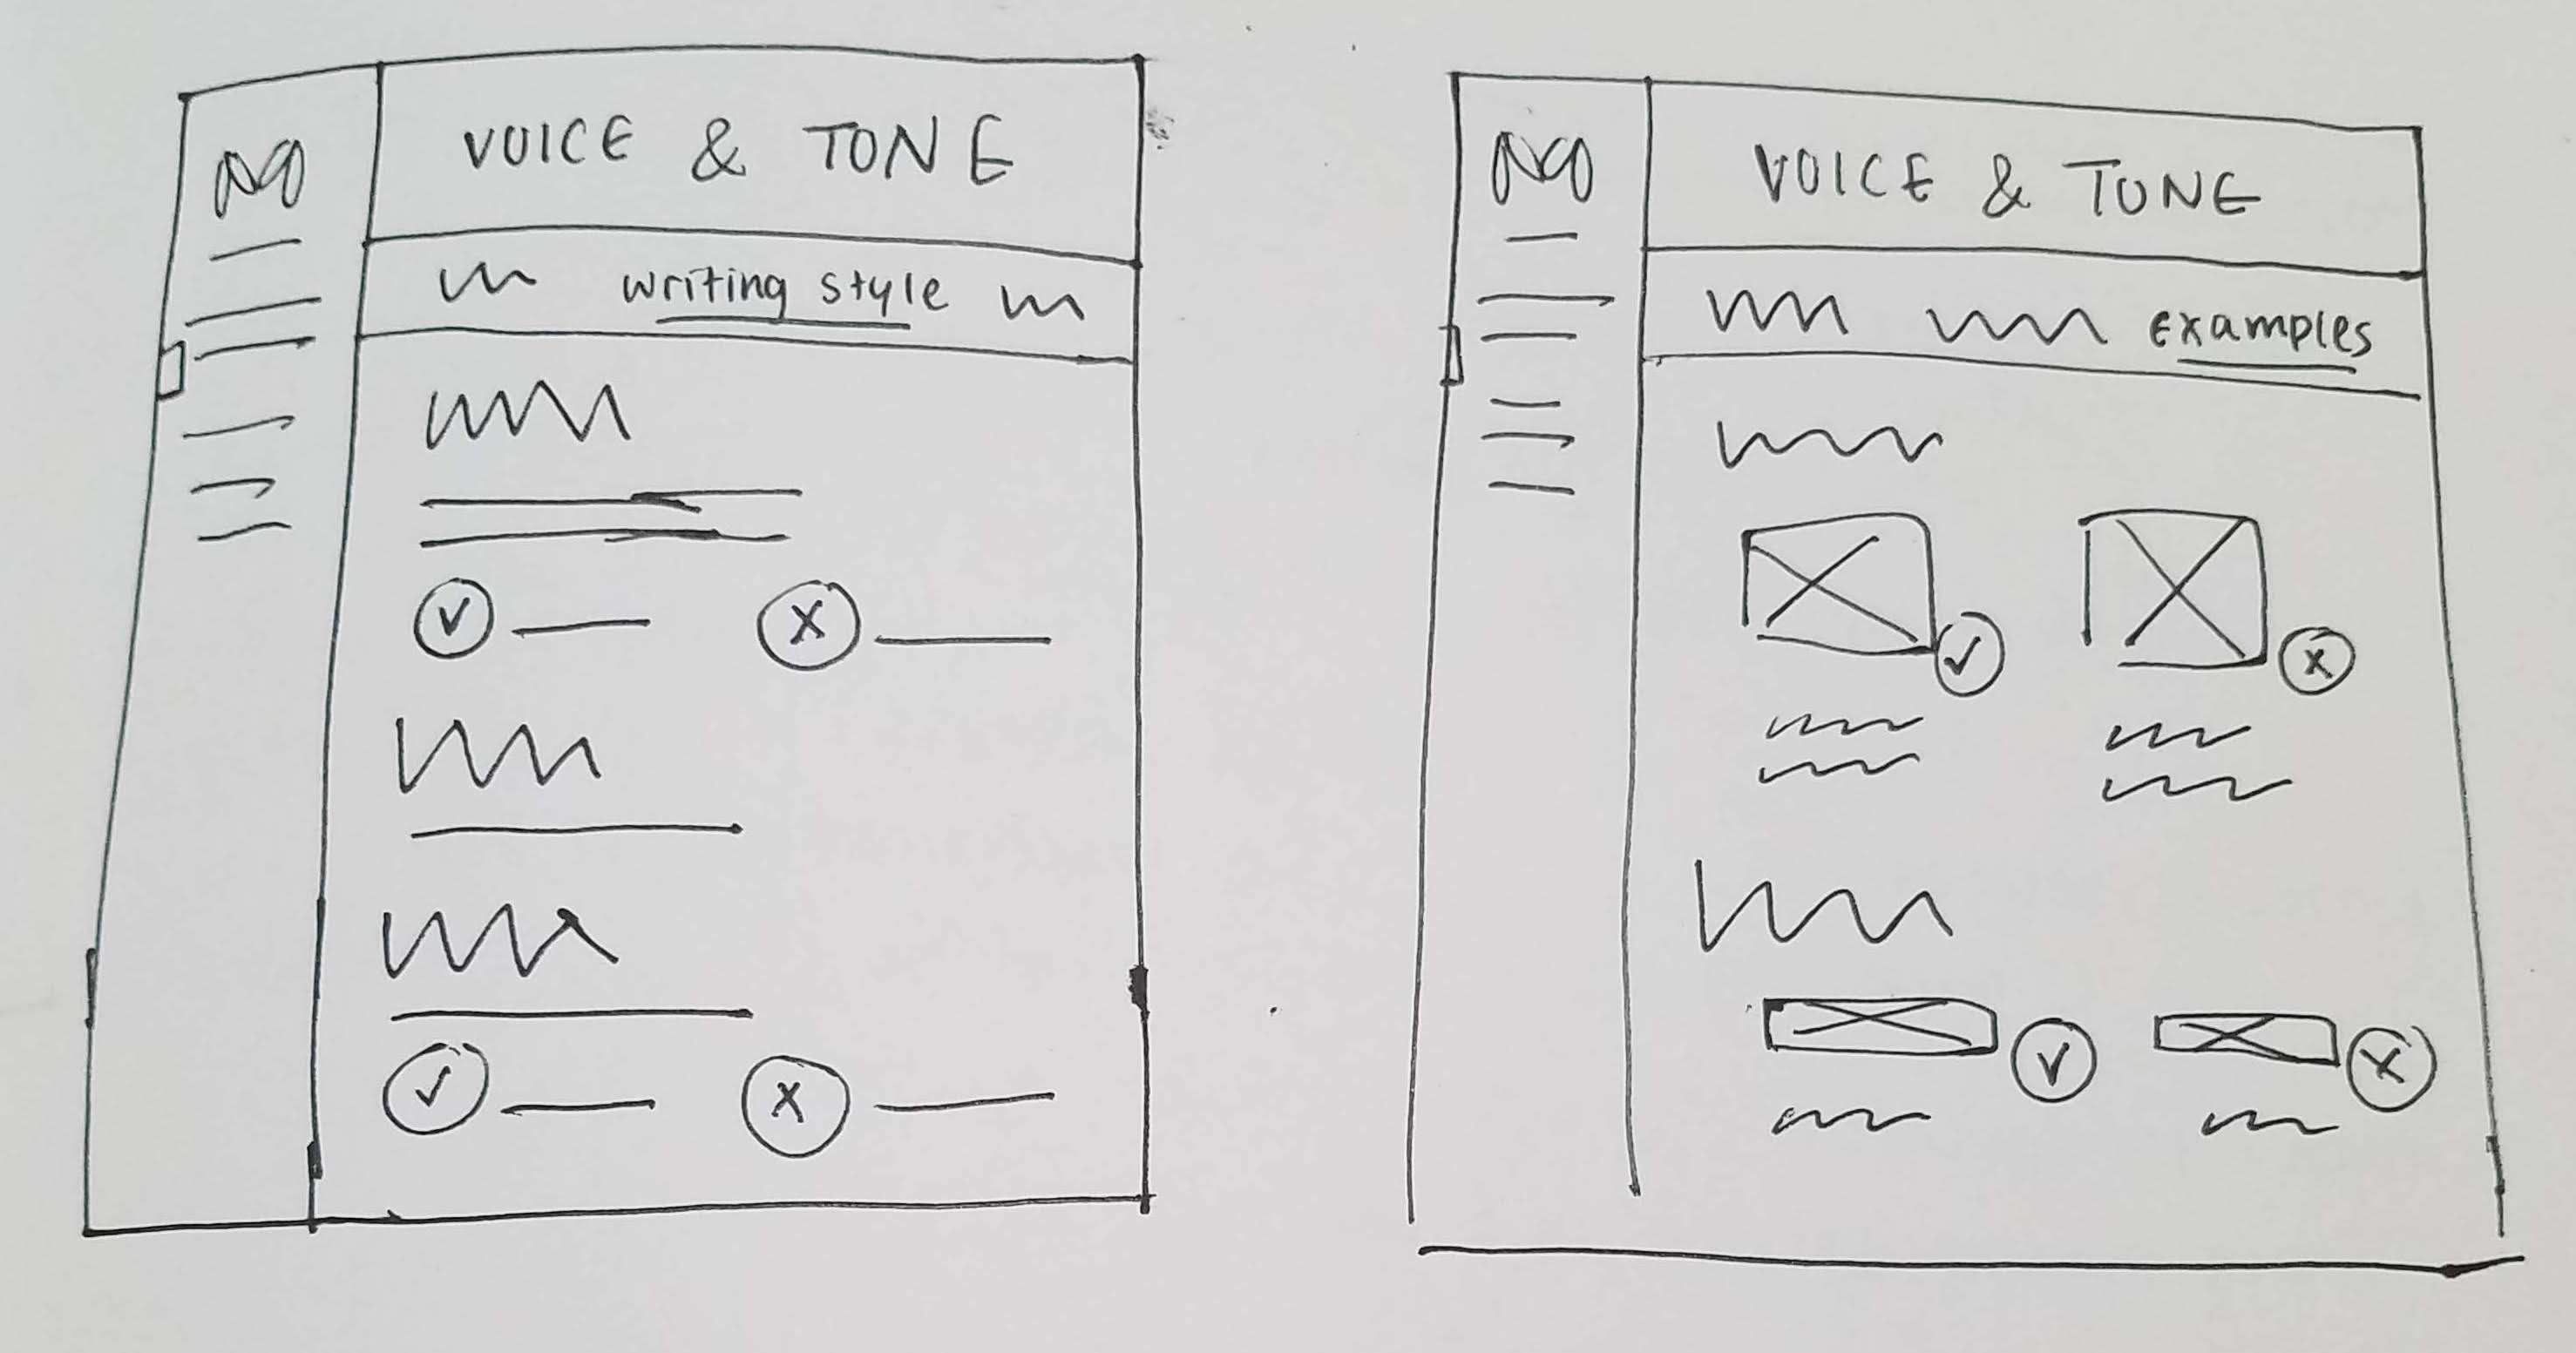 VOICE & TONE
writing style
VOICE & TONE
examples